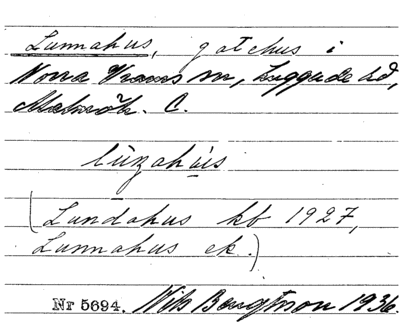 Lunnahus, gatehus i
Norra Vrams sn, Luggude hd,
Malmöh. C.
lùzahùis
(Lundahus kb 1927,
Lunnahus ek.)
Nr 5694. Nils Bengtsson 1936.